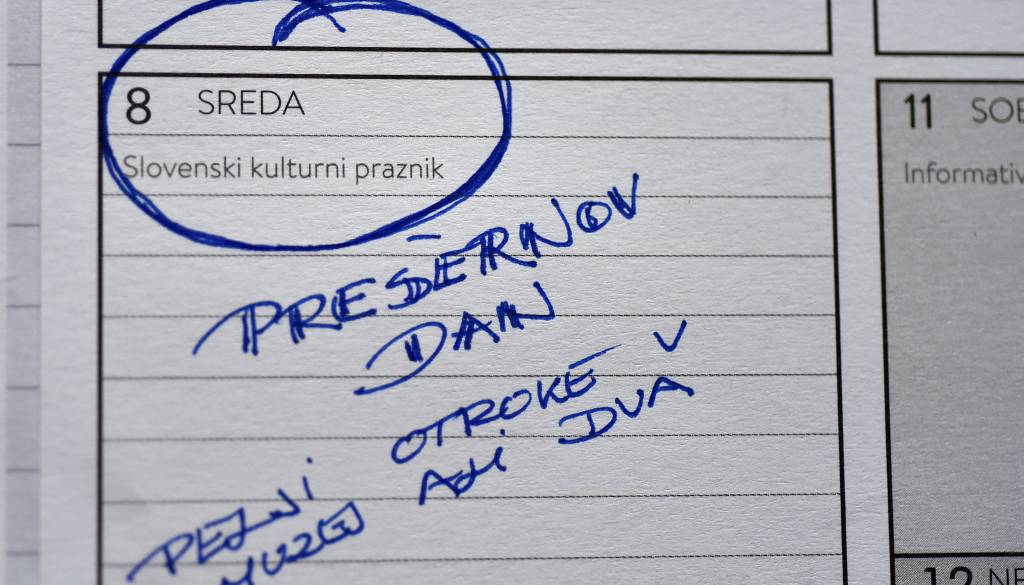 8 SREDA
Slovenski kulturni praznik
PREŠERNOV
DAN
PELJI OTROKE V
MUZEJ ALI DVA
11 SOB
Informativ
12 NE